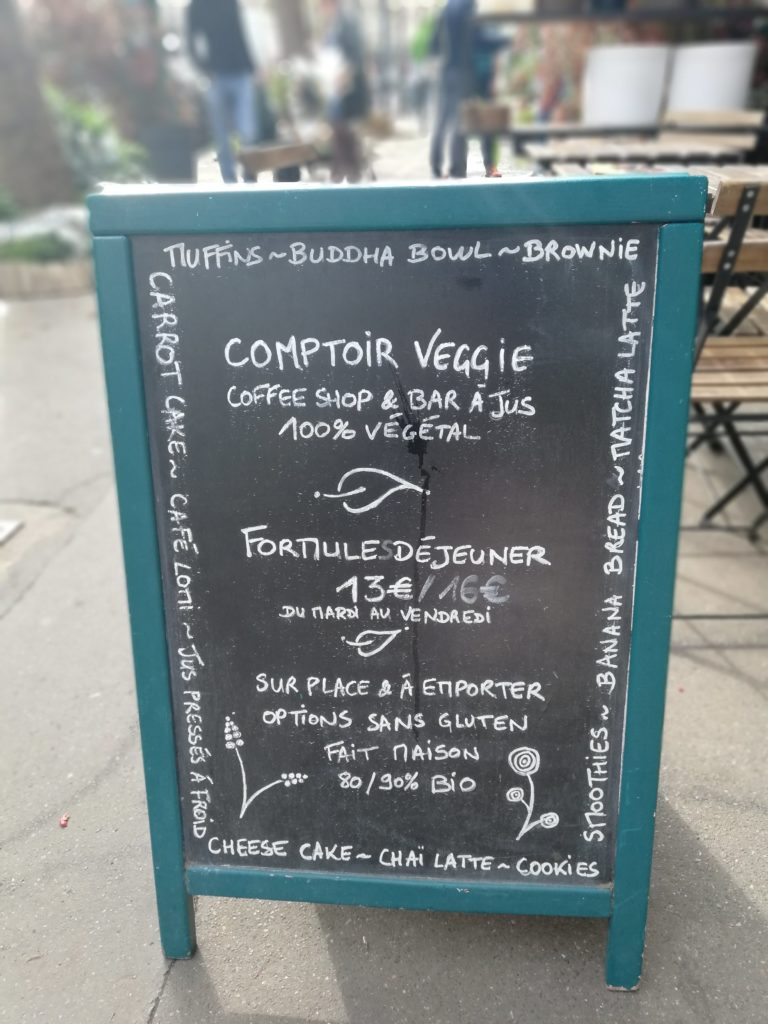 MUFFINS ~ BUDDHA BOWL ~ BROWNIE
CARROT CAKE ~ CAFÉ LOMI ~ JUS PRESSÉS À FROID
COMPTOIR VEGGIE
COFFEE SHOP & BAR À JUS
100% VÉGÉTAL
FORMULES DÉJEUNER
13€/16€
DU MARDI AU VENDREDI
SUR PLACE & À EMPORTER
OPTIONS SANS GLUTEN
FAIT MAISON
80/90% BIO
SMOOTHIES ~ BANANA BREAD ~ MATCHA LATTE
CHEESE CAKE ~ CHAÏ LATTE ~ COOKIES